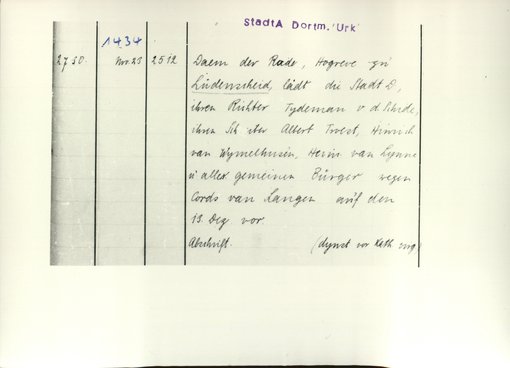 StadtA Dortm./Urk
1434
2750. Nov. 23 2512 Daem der Rade, Hogreve zu
Lüdenscheid, lädt die Stadt D,
ihren Richter Tydeman v. d.
ihren Albert Trest, Hinrich
van Wymelhusen, Heins van Lynne
u aller gemeinen Bürger wegen
Cords van Langen auf den
13. Dez vor.
Abschrift. (dynst vor Kath